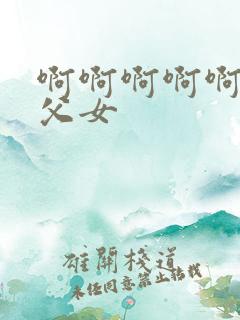 啊啊啊啊啊
父女
雄关栈道
未经同意禁止转载